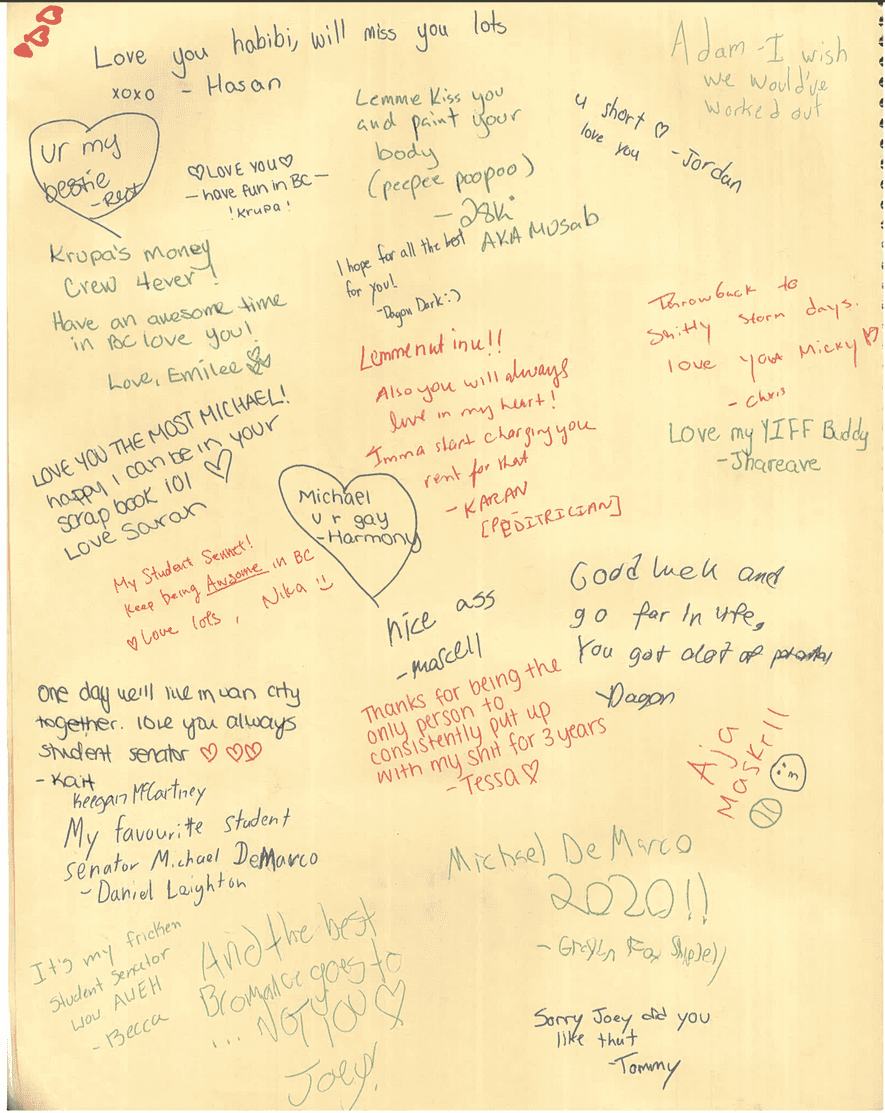 Love you habibi, will miss you lots
xoxo - Hasan
Adam - I wish
we would've
worked out
Lemme Kiss you
and paint your
body
(peepee poopoo)
- 28K
AKA Musab
u short ♡
love you
- Jordan
ur my
bestie
♡LOVE YOU♡
- have fun in BC -
! Krupa !
Krupa's money
Crew 4ever!
I hope for all the best
for you!
- Dagon Dark :)
Have an awesome time
in BC love you!
Love, Emilee
Throwback to
Shitty Storm days.
love you Micky ♡
- Chris
Lemme nut in u!!
Also you will always
live in my heart!
Imma start charging you
rent for that
- KARAN
[PEDITRICIAN]
Love my YIFF Buddy
- Shareave
LOVE YOU THE MOST MICHAEL!
happy I can be in your
scrap book 101 ♡
Love Saran
Michael
u r gay
- Harmony
My Student Sennet!
Keep being Awsome in BC
♡Love lots, Nika
nice ass
- marcell
Good luck and
go far in life,
You got alot of potential
- Dagon
one day we'll live in van city
together. love you always
student senator ♡ ♡♡
- Kait
Thanks for being the
only person to
consistently put up
with my shit for 3 years
- Tessa ♡
Aja
Maskrll
Keegan McCartney
My favourite student
senator Michael DeMarco
- Daniel Leighton
Michael De Marco
2020!!
It's my fricken
Student senator
wow AUEH
- Becca
And the best
Bromance goes to
... NOT YOU ♡
Joey!
Sorry Joey did you
like that
- Tommy